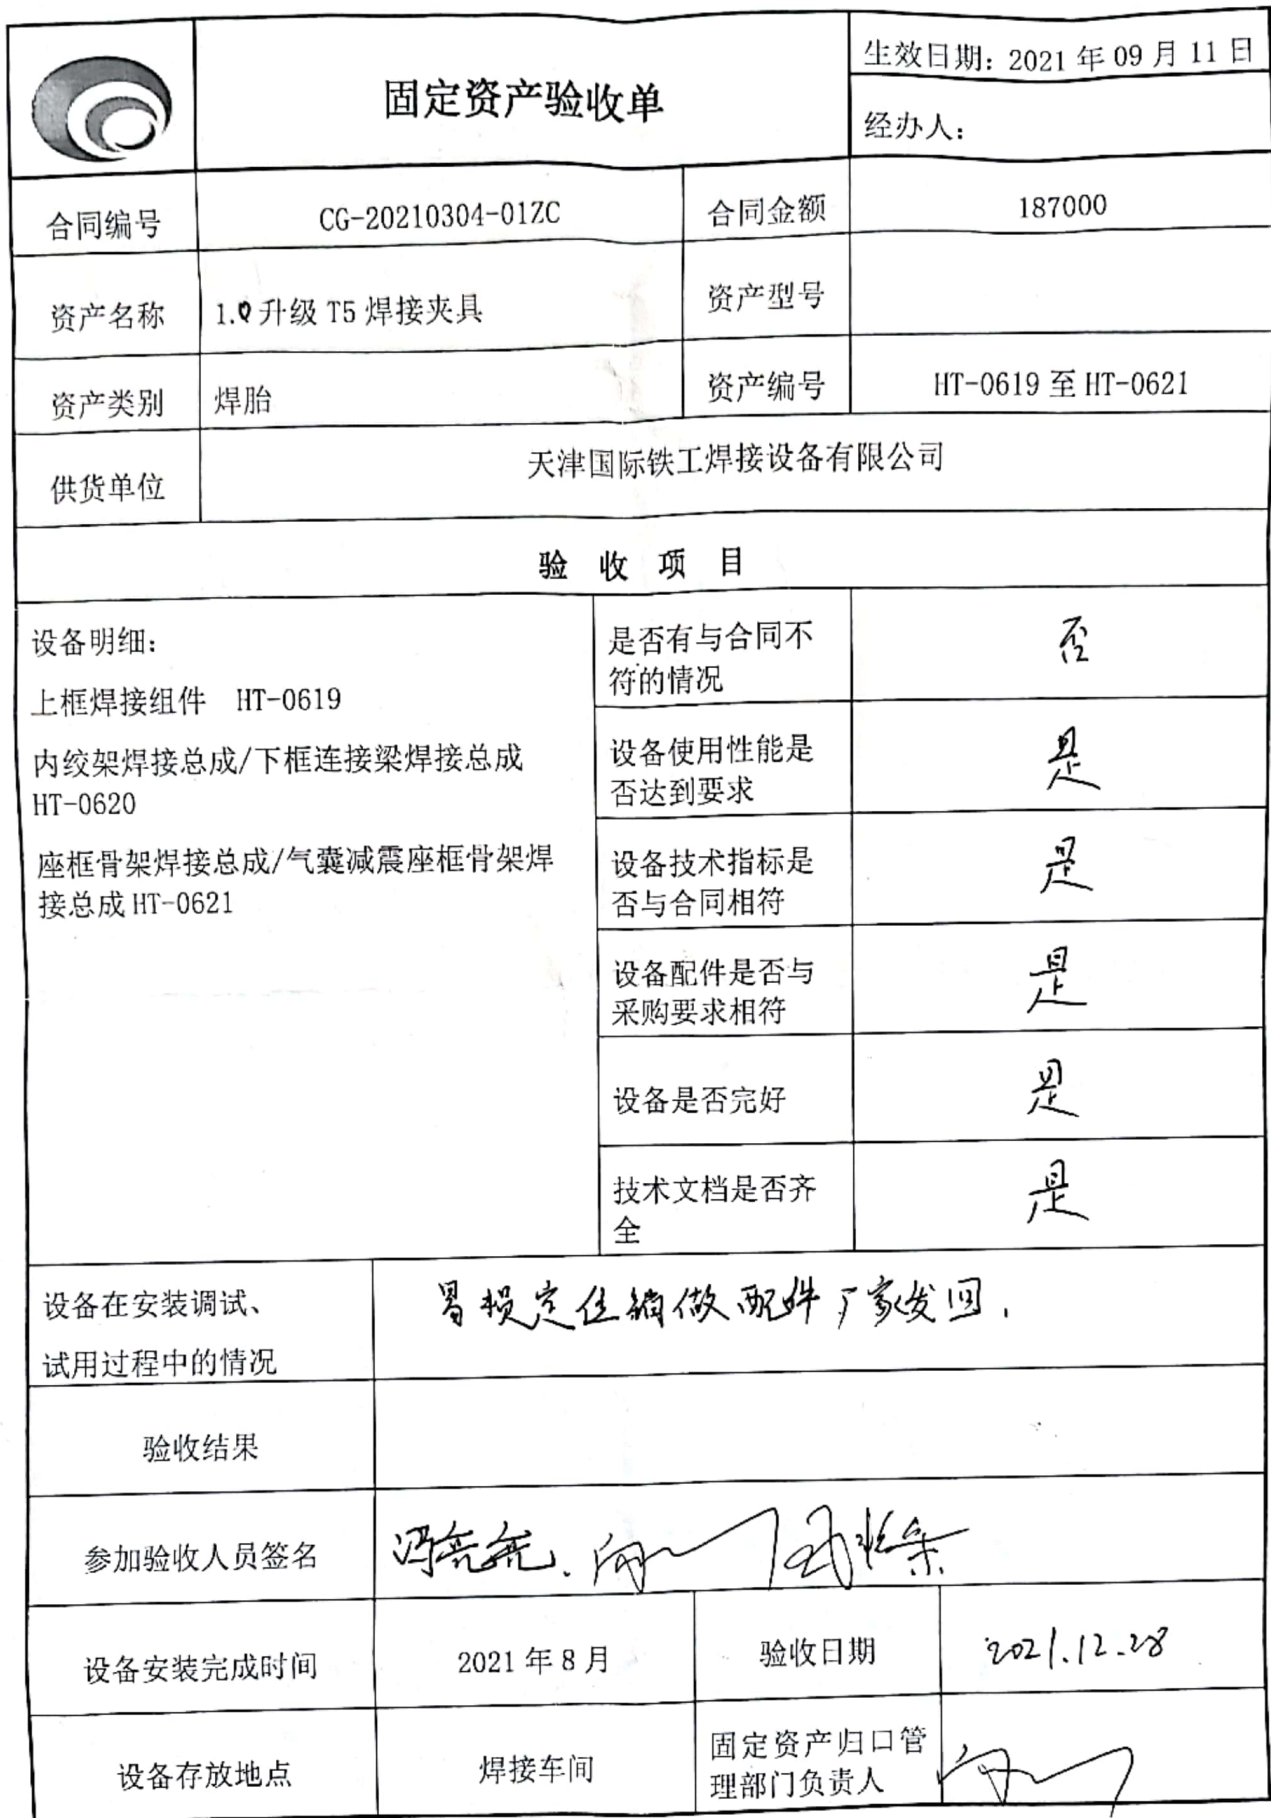 固定资产验收单
生效日期：2021年09月11日
经办人：
合同编号
CG-20210304-01ZC
合同金额
187000
资产名称
1.0升级T5焊接夹具
资产型号
资产类别
焊胎
资产编号
HT-0619至HT-0621
供货单位
天津国际铁工焊接设备有限公司
验 收 项 目
设备明细：
上框焊接组件 HT-0619
内绞架焊接总成/下框连接梁焊接总成
HT-0620
座框骨架焊接总成/气囊减震座框骨架焊
接总成HT-0621
是否有与合同不
符的情况
否
设备使用性能是
否达到要求
是
设备技术指标是
否与合同相符
是
设备配件是否与
采购要求相符
是
设备是否完好
是
技术文档是否齐
全
是
设备在安装调试、
试用过程中的情况
易损定位销做配件厂家发回.
验收结果
参加验收人员签名
冯亮亮.
设备安装完成时间
2021年8月
验收日期
2021.12.28
设备存放地点
焊接车间
固定资产归口管
理部门负责人